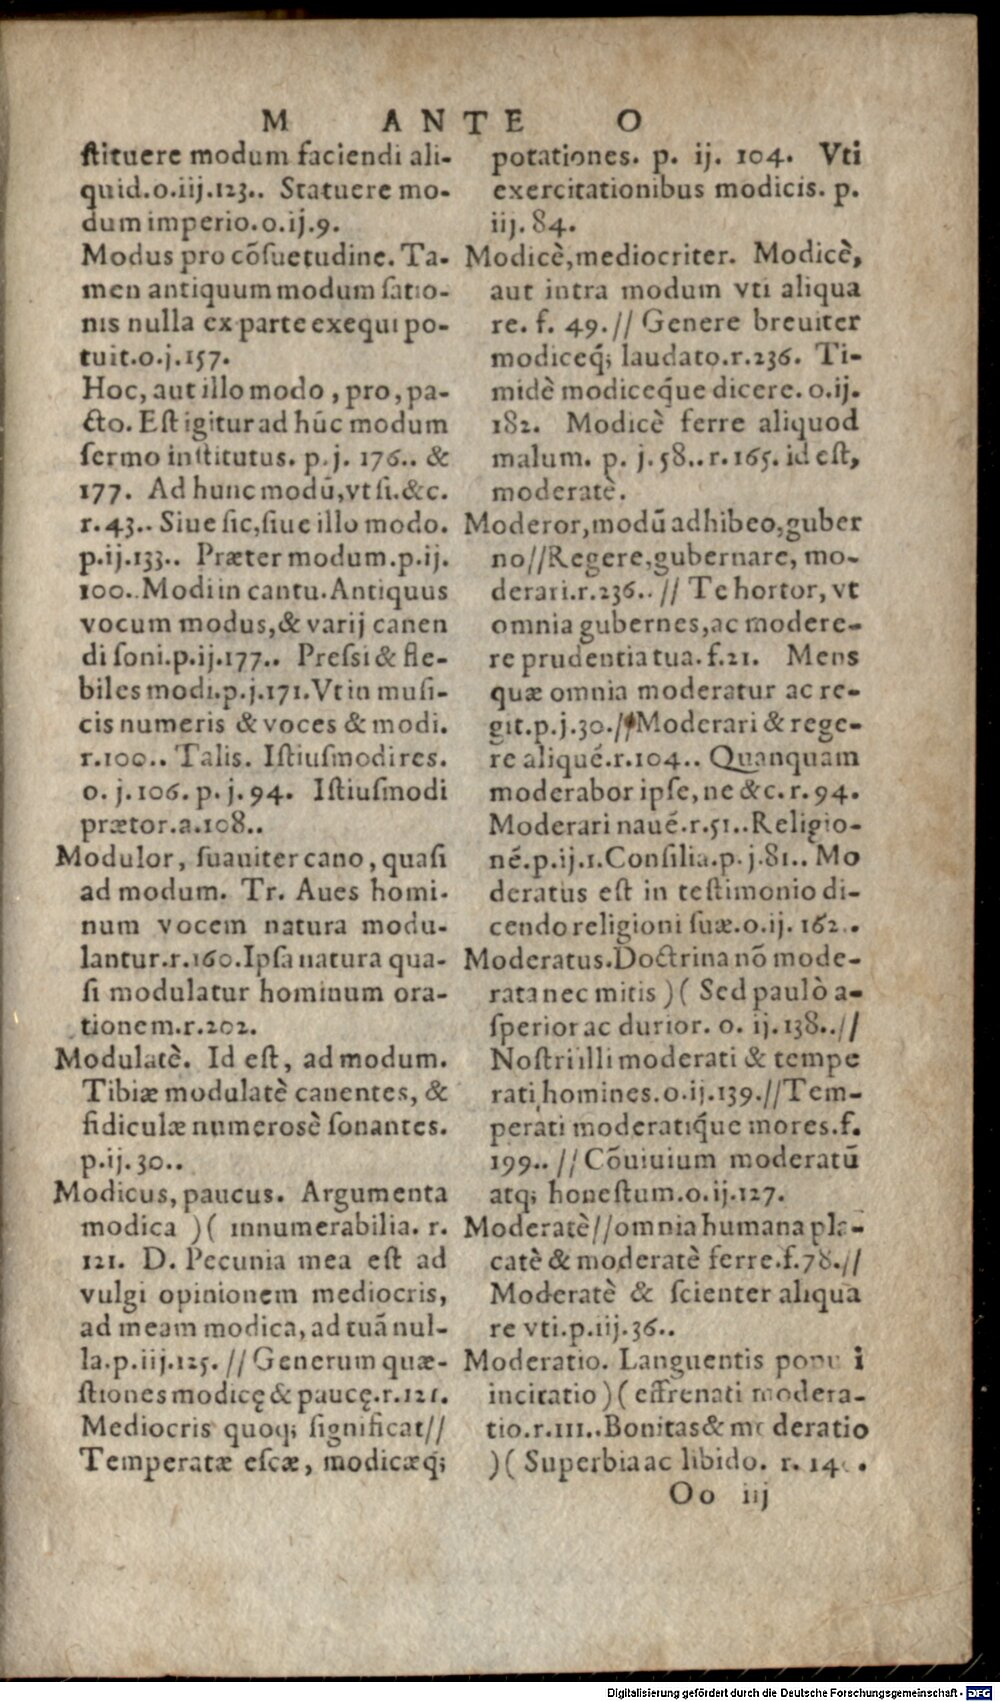 M ANTE O
stituere modum faciendi ali-
quid.o.iij.123.. Statuere mo-
dum imperio.o.ij.9.
Modus pro cõsuetudine. Ta-
men antiquum modum satio-
nis nulla ex parte exequi po-
tuit.o.j.157.
Hoc, aut illo modo , pro, pa-
cto. Est igitur ad hũc modum
sermo institutus. p.j. 176.. &
177. Ad hunc modũ,vt si.&c.
r.43.. Siue sic,siue illo modo.
p.ij.133.. Præter modum.p.ij.
100..Modi in cantu.Antiquus
vocum modus,& varij canen
di soni.p.ij.177.. Pressi & fle-
biles modi.p.j.171.Vt in musi-
cis numeris & voces & modi.
r.100.. Talis. Istiusmodi res.
o. j.106. p. j. 94. Istiusmodi
prætor.a.108..
Modulor, suauiter cano, quasi
ad modum. Tr. Aues homi-
num vocem natura modu-
lantur.r.160.Ipsa natura qua-
si modulatur hominum ora-
tionem.r.202.
Modulatè. Id est, ad modum.
Tibiæ modulatè canentes, &
fidiculæ numerosè sonantes.
p.ij.30..
Modicus, paucus. Argumenta
modica )( innumerabilia. r.
121. D. Pecunia mea est ad
vulgi opinionem mediocris,
ad meam modica, ad tuã nul-
la.p.iij.125. // Generum quæ-
stiones modicę & paucę.r.121.
Mediocris quoq; significat//
Temperatæ escæ, modicæq́;
potationes. p. ij. 104. Vti
exercitationibus modicis. p.
iij. 84.
Modicè,mediocriter. Modicè,
aut intra modum vti aliqua
re. f. 49. // Genere breuiter
modiceq́; laudato.r.236. Ti-
midè modiceq́ue dicere. o.ij.
182. Modicè ferre aliquod
malum. p. j.58..r.165. id est,
moderatè.
Moderor,modũ adhibeo,guber
no//Regere,gubernare, mo-
derari.r.236.. // Te hortor, vt
omnia gubernes,ac modere-
re prudentia tua. f.21. Mens
quæ omnia moderatur ac re-
git.p.j.30.//Moderari & rege-
re aliqué.r.104.. Quanquam
moderabor ipse, ne &c. r. 94.
Moderari naué.r.51..Religio-
né.p.ij.1.Consilia.p.j.81.. Mo
deratus est in testimonio di-
cendo religioni suæ.o.ij. 162..
Moderatus.Doctrina nõ mode-
rata nec mitis )( Sed paulò a-
sperior ac durior. o. ij.138..//
Nostri illi moderati & tempe
rati homines.o.ij.139.//Tem-
perati moderatiq́ue mores.f.
199.. // Cõuiuium moderatũ
atq; honestum.o.ij.127.
Moderatè//omnia humana pla-
catè & moderatè ferre.f.78.//
Moderatè & scienter aliqua
re vti.p.iij.36..
Moderatio. Languentis
incitatio )( effrenati modera-
tio.r.111..Bonitas & moderatio
)( Superbia ac libido. r.
Oo iij
Digitalisierung gefördert durch die Deutsche Forschungsgemeinschaft - DFG